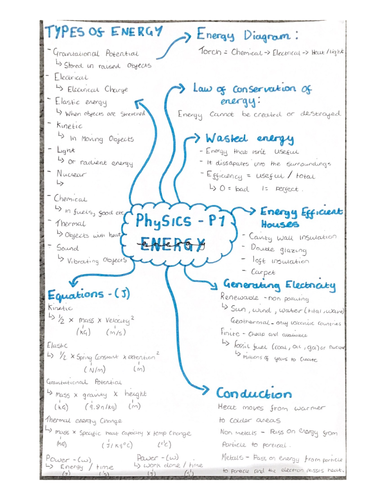 TYPES OF ENERGY
- Gravitational Potential
↳ Stored in raised Objects
- Electrical
↳ Electrical Charge
- Elastic energy
↳ When objects are stretched
- Kinetic
↳ In Moving Objects
- Light
↳ Or radiant energy
- Nuclear
↳
- Chemical
↳ in fuels, food etc
- Thermal
↳ Objects with heat
- Sound
↳ Vibrating Objects
Energy Diagram:
Torch = Chemical → Electrical → Heat/Light
Law of Conservation of
energy:
Energy Cannot be created or destroyed
Wasted energy
- Energy that isn't useful
- It dissipates into the surroundings
- Efficiency = useful / total
↳ 0 = bad 1 = perfect
PhySICS - P1
ENERGY
Energy Efficient
Houses
- Cavity wall insulation
- Double glazing
- loft insulation
- Carpet
Generating Electricity
Renewable - non polluting
↳ Sun, wind, water (tidal, wave)
Geothermal -
Finite -
↳ fossil fuels (coal, oil, gas) or nuclear
↳ Millions of years to create
Conduction
Heat moves from warmer
to cooler areas
Non metals - Pass on energy from
Particle to particle.
Metals - Pass on energy from particle
to particle and the electrons
Equations - (J)
Kinetic
↳ ½ x mass x velocity²
(kg) (m/s)
Elastic
↳ ½ x Spring Constant x extension²
(N/m) (m)
Gravitational Potential
↳ mass x gravity x height
(kg) (9.8N/kg) (m)
Thermal energy change
↳ mass x Specific heat capacity x temp change
(kg) (J/kg°C) (°C)
Power - (w) Power - (w)
↳ Energy / time ↳ work done / time
(J) (s) (J) (s)